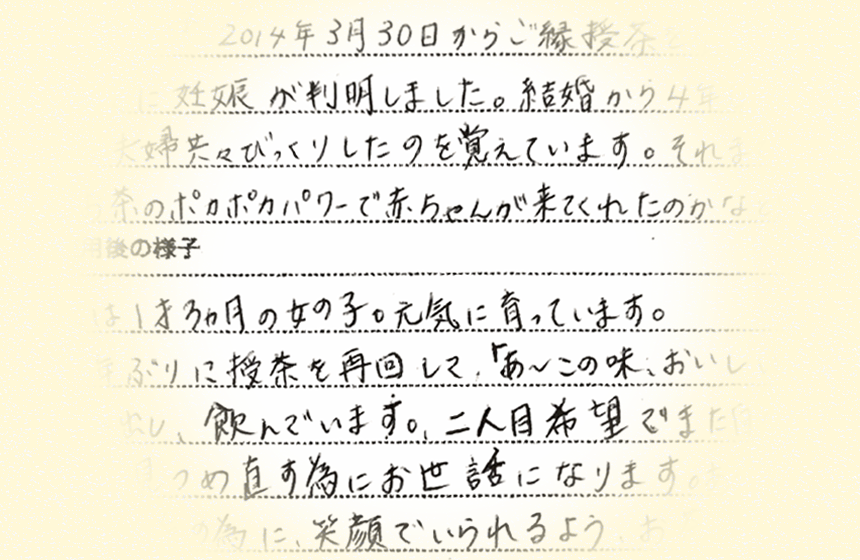 2014年3月30日からご縁授茶を
に妊娠が判明しました。結婚から4年
夫婦共々びっくりしたのを覚えています。それま
お茶のポカポカパワーで赤ちゃんが来てくれたのかな
用後の様子
は1才3ヵ月の女の子。元気に育っています。
年ぶりに授茶を再回して、「あ〜この味、おいし
出し、飲んでいます。二人目希望でまた
見つめ直す為にお世話になります。
の為に、笑顔でいられるよう、お